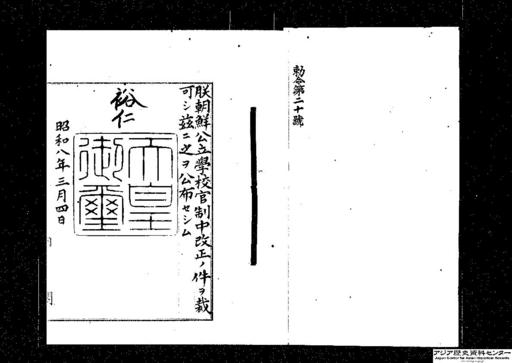 勅令第二十號
朕朝鮮公立學校官制中改正ノ件ヲ裁
可シ茲ニ之ヲ公布セシム
裕仁
天皇
御璽
昭和八年三月四日
アジア歴史資料センター
Japan Center for Asian Historical Records